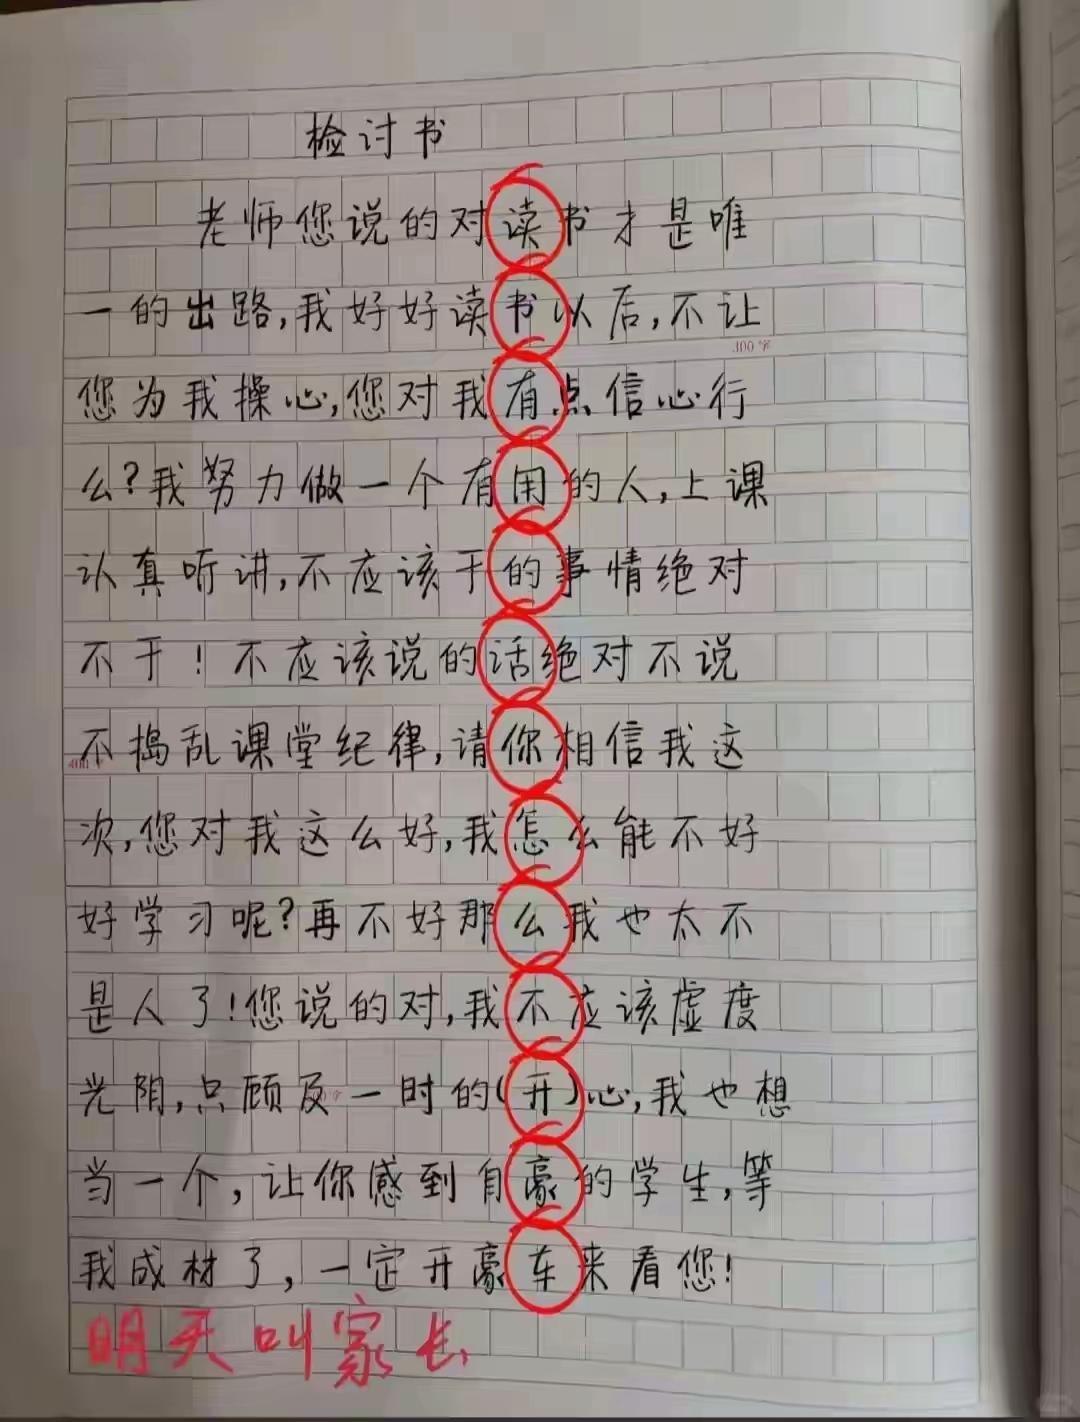 检讨书
老师您说的对读书才是唯
一的出路,我好好读书以后,不让
300字
您为我操心,您对我有点信心行
么?我努力做一个有用的人,上课
认真听讲,不应该干的事情绝对
不干!不应该说的话绝对不说
不捣乱课堂纪律,请你相信我这
400
次,您对我这么好,我怎么能不好
好学习呢?再不好那么我也太不
是人了!您说的对,我不应该虚度
光阴,只顾及一时的(开)心,我也想
当一个,让你感到自豪的学生,等
我成材了,一定开豪车来看您!
明天叫家长